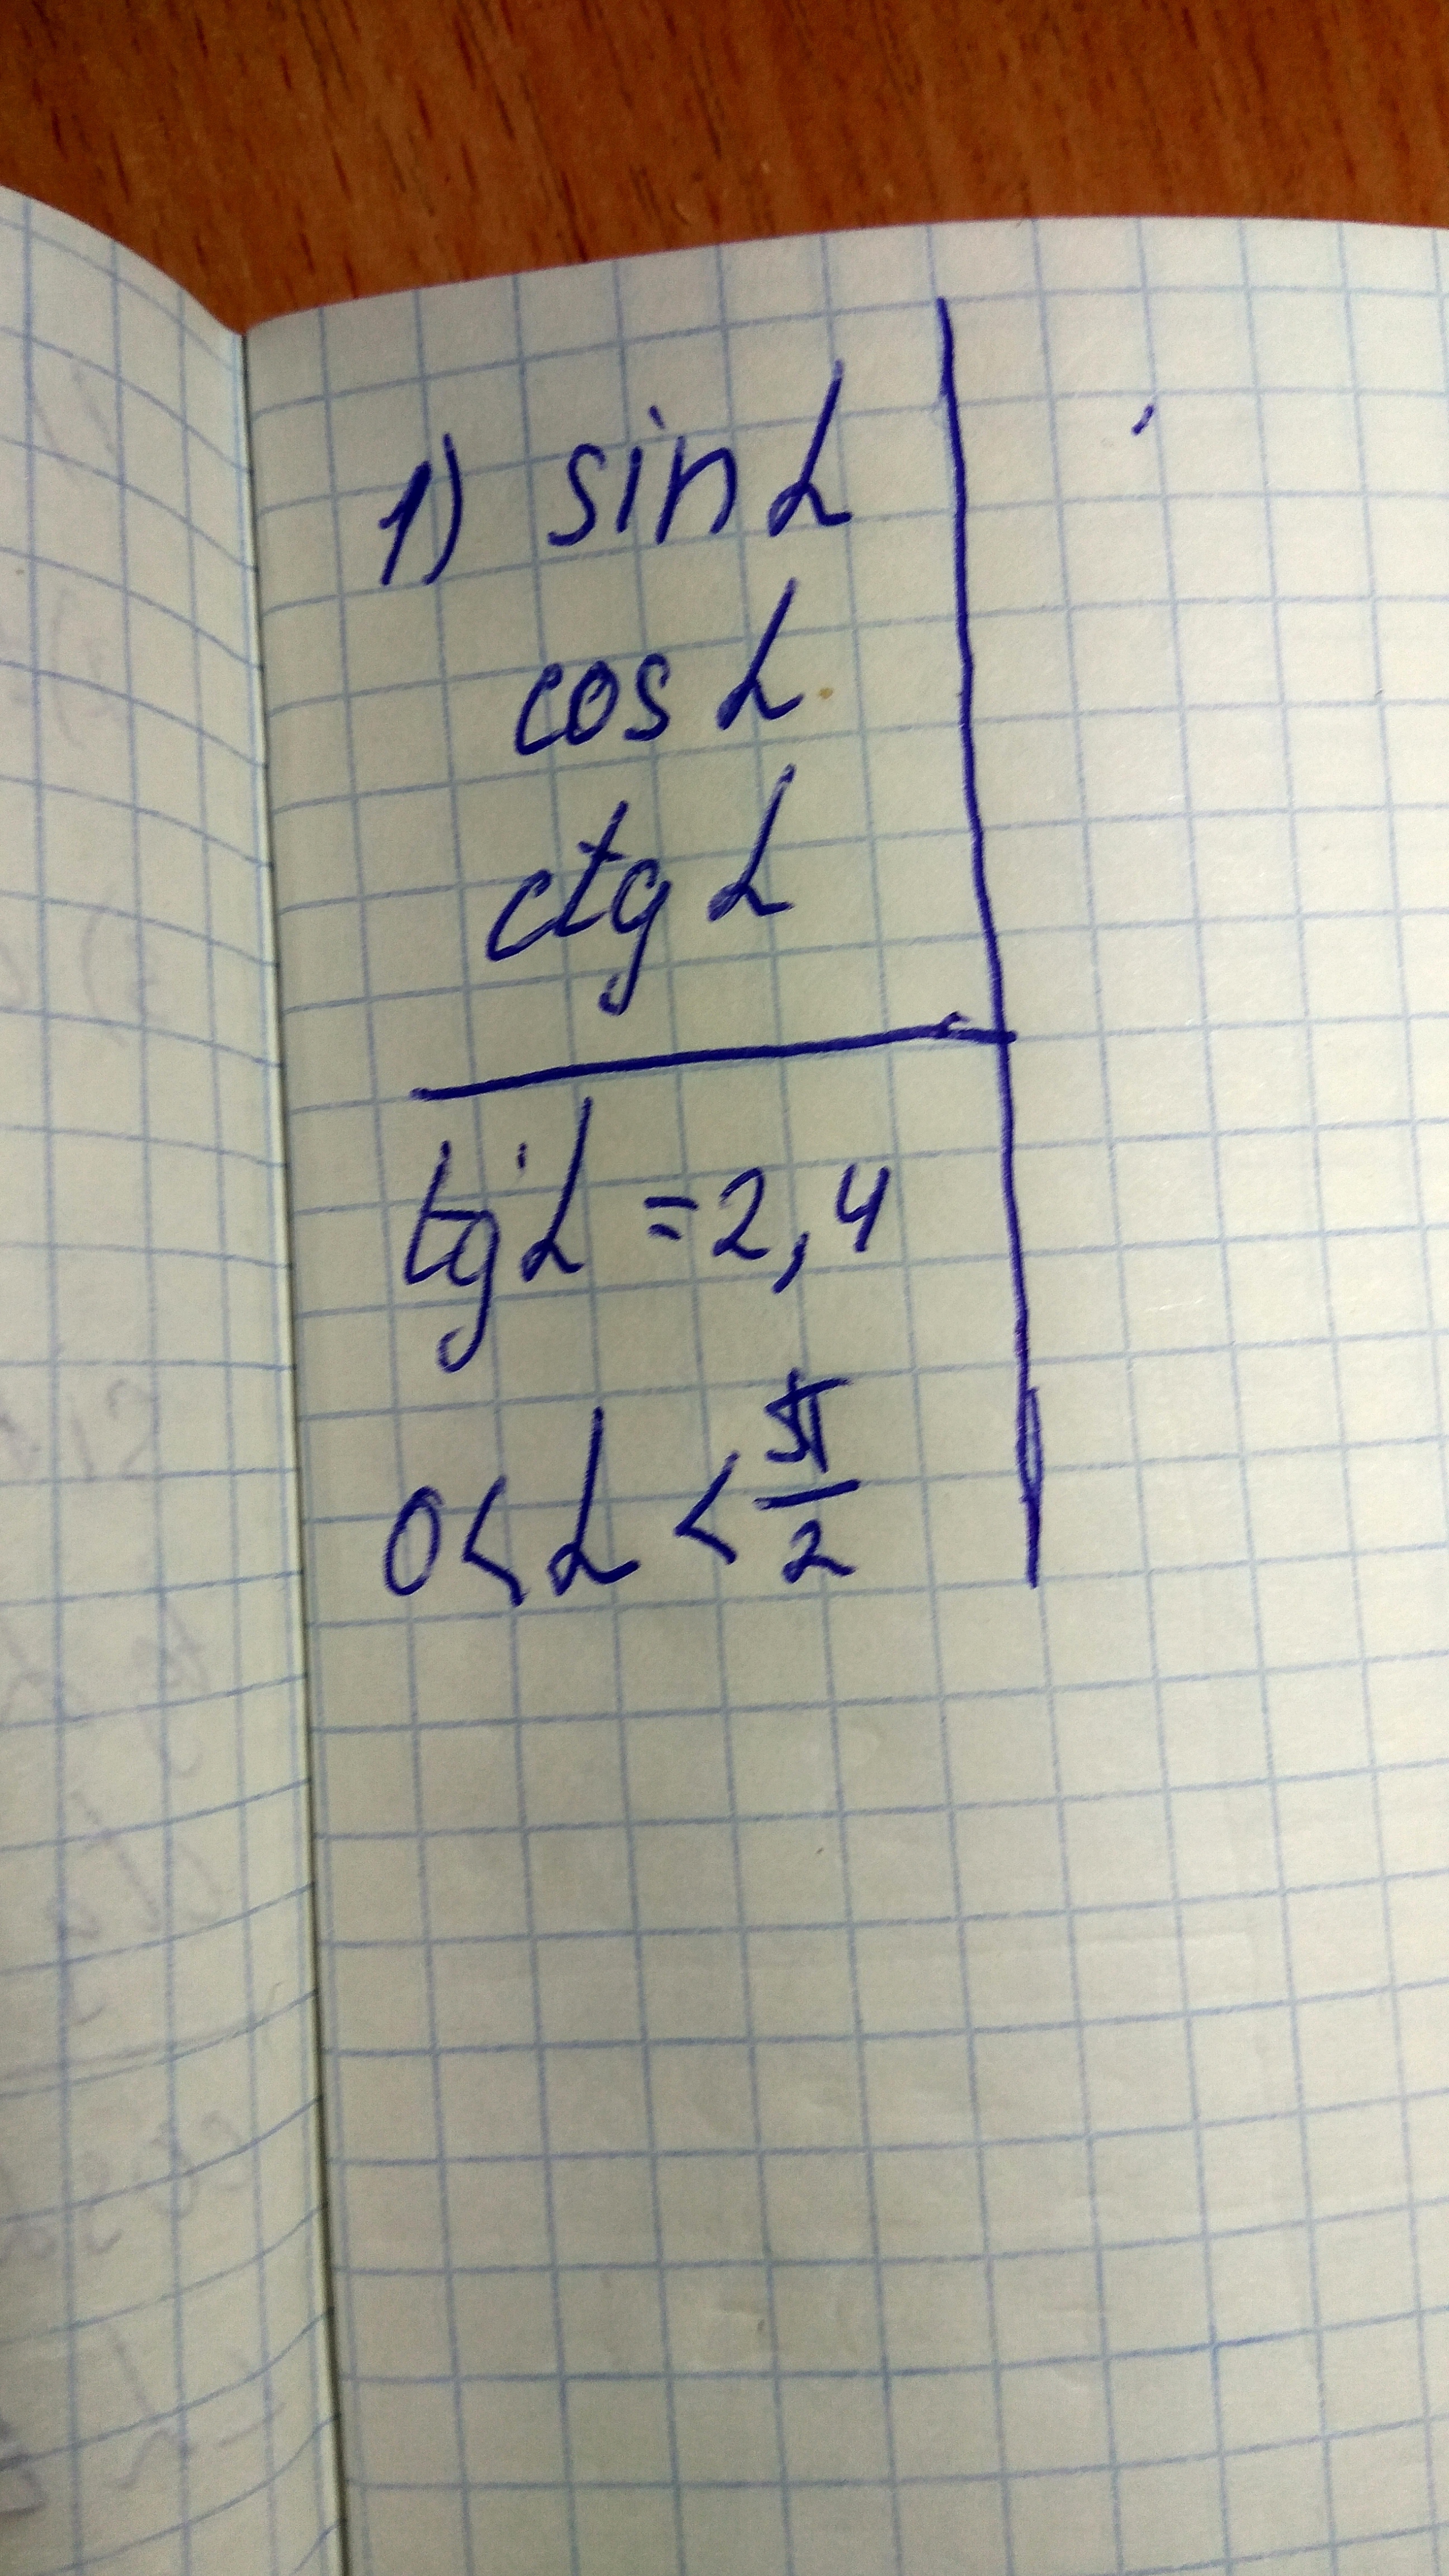 1) sin α
cos α
ctg α
tg α = 2,4
0 < α < π/2